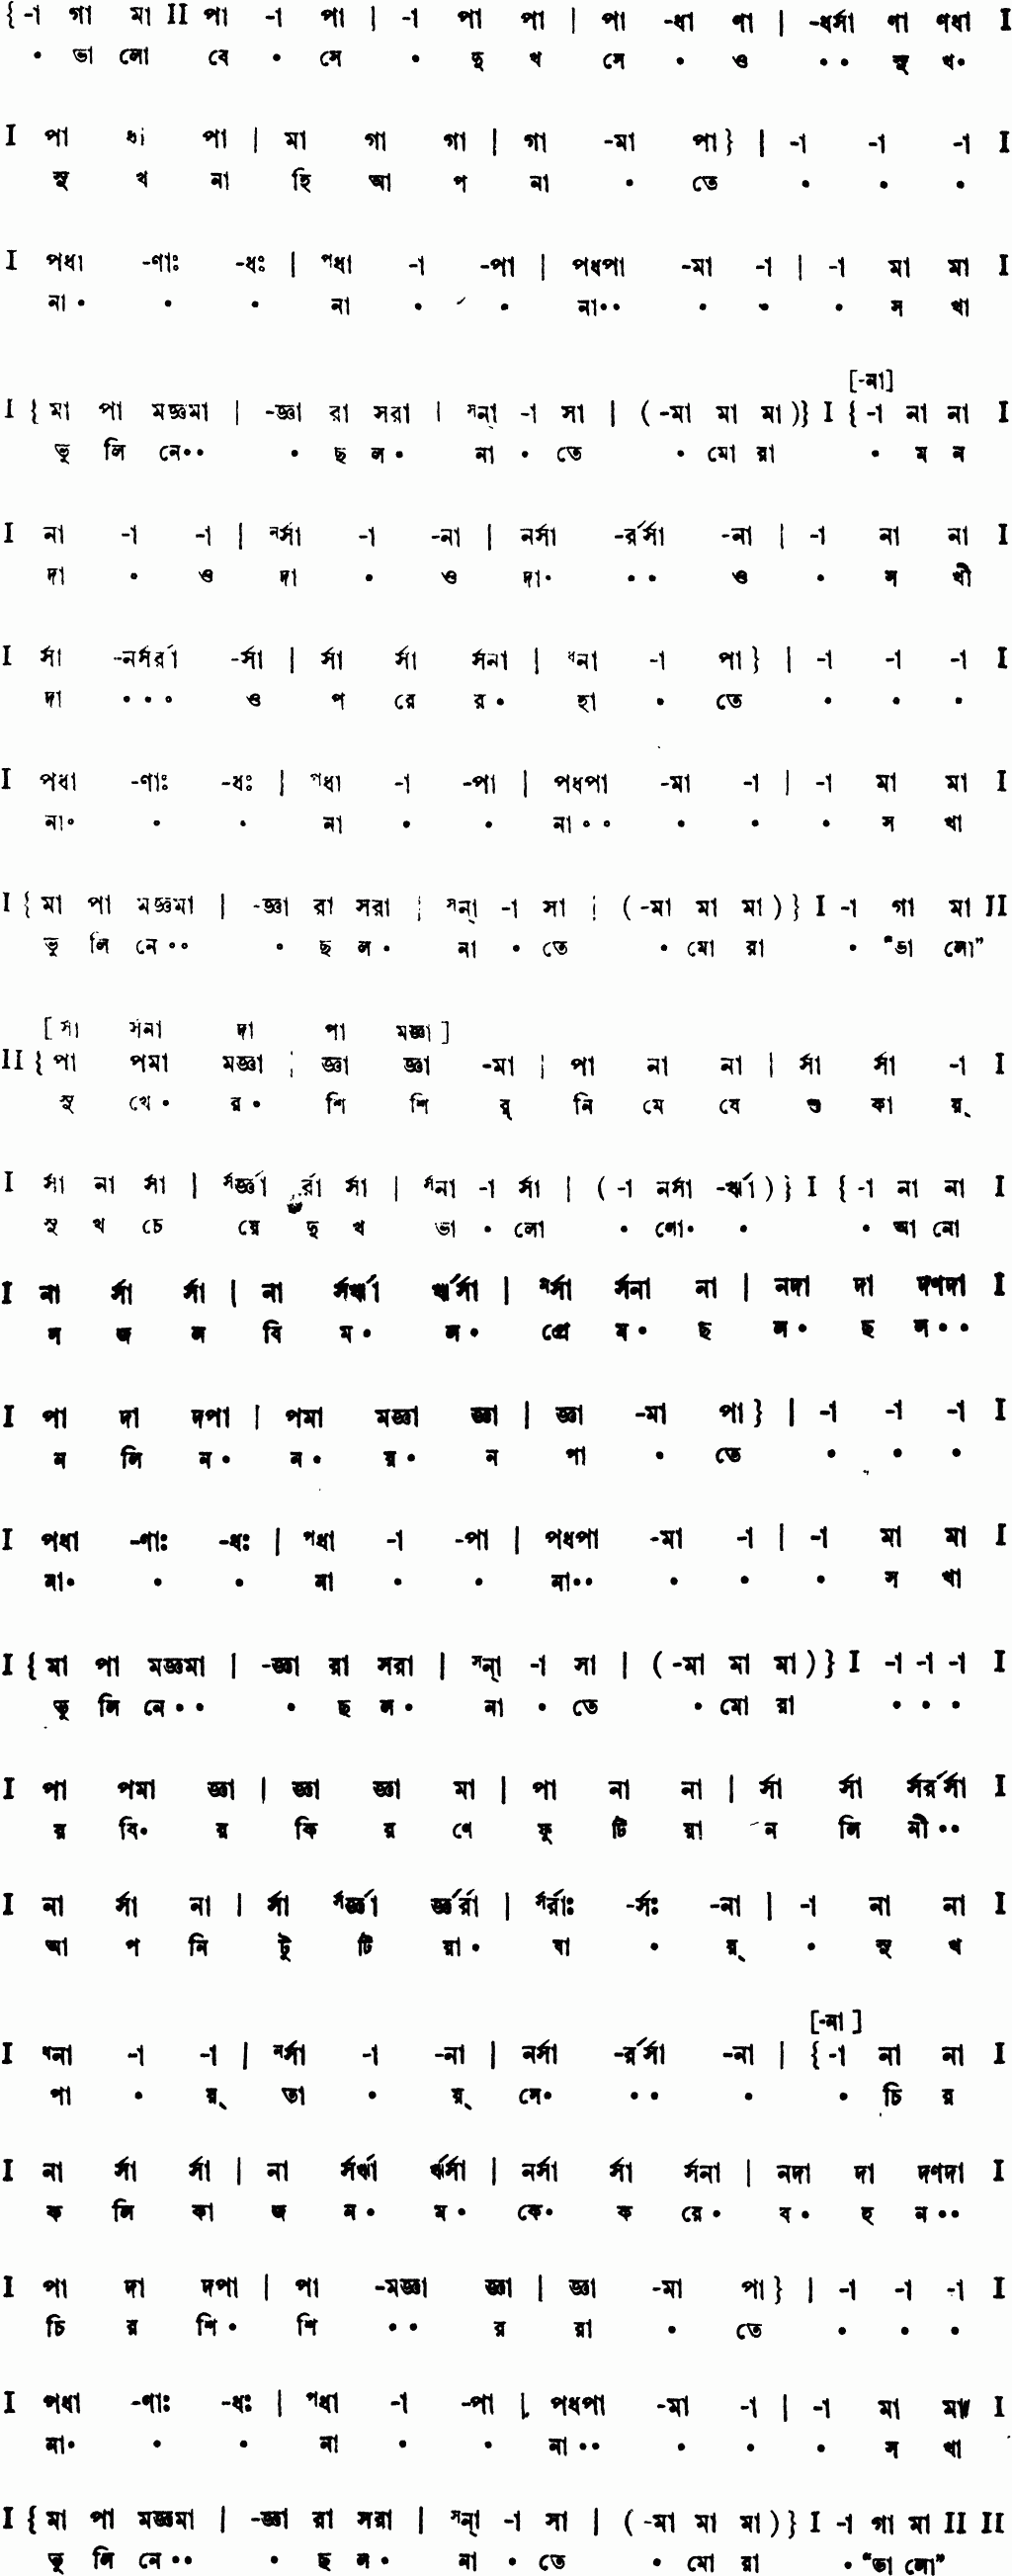 {-া গা মা II পা -া পা | -া পা পা | পা -ধা ণা | -ধর্সা ণা ণধা I
• ভা লো বে • সে • দু খ সে • ও • • সু খ•
I পা ধা পা | মা গা গা | গা -মা পা} | -া -া -া I
সু খ না হি আ প না • তে • • •
I পধা -ণাঃ -ধঃ | পধা -া -পা | পধপা -মা -া | -া মা মা I
না • • • না • • না•• • • • স খা
[-না]
I { মা পা মজ্ঞমা | -জ্ঞা রা সরা | সন্‌া -া সা | (-মা মা মা)} I {-া না না I
ভু লি নে•• • ছ ল• না • তে • মো রা • ম ন
I না -া -া | নর্সা -া -না | নর্সা -র্রর্সা -না | -া না না I
দা • ও দা • ও দা• • • ও • স খী
I র্সা -নর্সর্রা -র্সা | র্সা র্সা র্সনা | ধনা -া পা} | -া -া -া I
দা • • • ও প রে র• হা • তে • • •
I পধা -ণাঃ -ধঃ | পধা -া -পা | পধপা -মা -া | -া মা মা I
না• • • না • • না•• • • • স খা
I { মা পা মজ্ঞমা | -জ্ঞা রা সরা | সন্‌া -া সা | (-মা মা মা)} I -া গা মা II
ভু লি নে•• • ছ ল• না • তে • মো রা • “ভা লো”
[র্সা র্সনা দা পা মজ্ঞা]
II { পা পমা মজ্ঞা | জ্ঞা জ্ঞা -মা | পা না না | র্সা র্সা -া I
সু খে• র• শি শি র্ নি মে ষে শু কা য়্
I র্সা না র্সা | র্সর্জ্ঞা র্রা র্সা | র্সনা -া র্সা | (-া নর্সা -র্ঋা)} I {-া না না I
সু খ চে য়ে দু খ ভা • লো • গো• • • আ নো
I না র্সা র্সা | না র্সর্ঋা র্ঋর্সা | নর্সা র্সনা না | নদা দা দণদা I
স জ ল বি ম• ল• প্রে ম• ছ ল• ছ ল••
I পা দা দপা | পমা মজ্ঞা জ্ঞা | জ্ঞা -মা পা} | -া -া -া I
ন লি ন• ন• য়• ন পা • তে • • •
I পধা -ণাঃ -ধঃ | পধা -া -পা | পধপা -মা -া | -া মা মা I
না• • • না • • না•• • • • স খা
I { মা পা মজ্ঞমা | -জ্ঞা রা সরা | সন্‌া -া সা | (-মা মা মা)} I -া -া -া I
ভু লি নে•• • ছ ল• না • তে • মো রা • • •
I পা পমা জ্ঞা | জ্ঞা জ্ঞা মা | পা না না | র্সা র্সা র্সর্রর্সা I
র বি• র কি র ণে ফু টি য়া ন লি নী••
I না র্সা না | র্সা র্সর্জ্ঞা র্জ্ঞর্রা | র্সর্রাঃ -র্সঃ -না | -া না না I
আ প নি টু টি য়া• যা • য়্ • সু খ
[-না]
I ধনা -া -া | নর্সা -া -না | নর্সা -র্রর্সা -না | {-া না না I
পা • য়্ তা • য়্ সে• • • • • চি র
I না র্সা র্সা | না র্সর্ঋা র্ঋর্সা | নর্সা র্সা র্সনা | নদা দা দণদা I
ক লি কা জ ন• ম• কে• ক রে• ব• হ ন••
I পা দা দপা | পা -মজ্ঞা জ্ঞা | জ্ঞা -মা পা} | -া -া -া I
চি র শি• শি • • র রা • তে • • •
I পধা -ণাঃ -ধঃ | পধা -া -পা | পধপা -মা -া | -া মা মা I
না• • • না • • না•• • • • স খা
I { মা পা মজ্ঞমা | -জ্ঞা রা সরা | সন্‌া -া সা | (-মা মা মা)} I -া গা মা II II
ভু লি নে•• • ছ ল• না • তে • মো রা • “ভা লো”